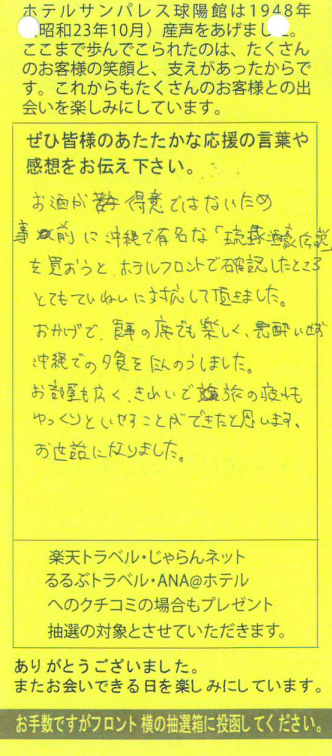 ホテルサンパレス球陽館は1948年
昭和23年10月）産声をあげました。
ここまで歩んでこられたのは、たくさん
のお客様の笑顔と、支えがあったからで
す。これからもたくさんのお客様との出
会いを楽しみにしています。
ぜひ皆様のあたたかな応援の言葉や
感想をお伝え下さい。
お酒が 得意ではないため
事前に沖縄で有名な「琉球酒豪伝説」
を買おうと、ホテルフロントで確認したところ
とてもていねいに対応して頂きました。
おかげで、 の席でも楽しく、悪酔いせず
沖縄での夕食をたんのうしました。
お部屋も広く、きれいで 旅の疲れも
ゆっくりといやすことができたと思います。
お世話になりました。
楽天トラベル・じゃらんネット
るるぶトラベル・ANA@ホテル
へのクチコミの場合もプレゼント
抽選の対象とさせていただきます。
ありがとうございました。
またお会いできる日を楽しみにしています。
お手数ですがフロント横の抽選箱に投函してください。